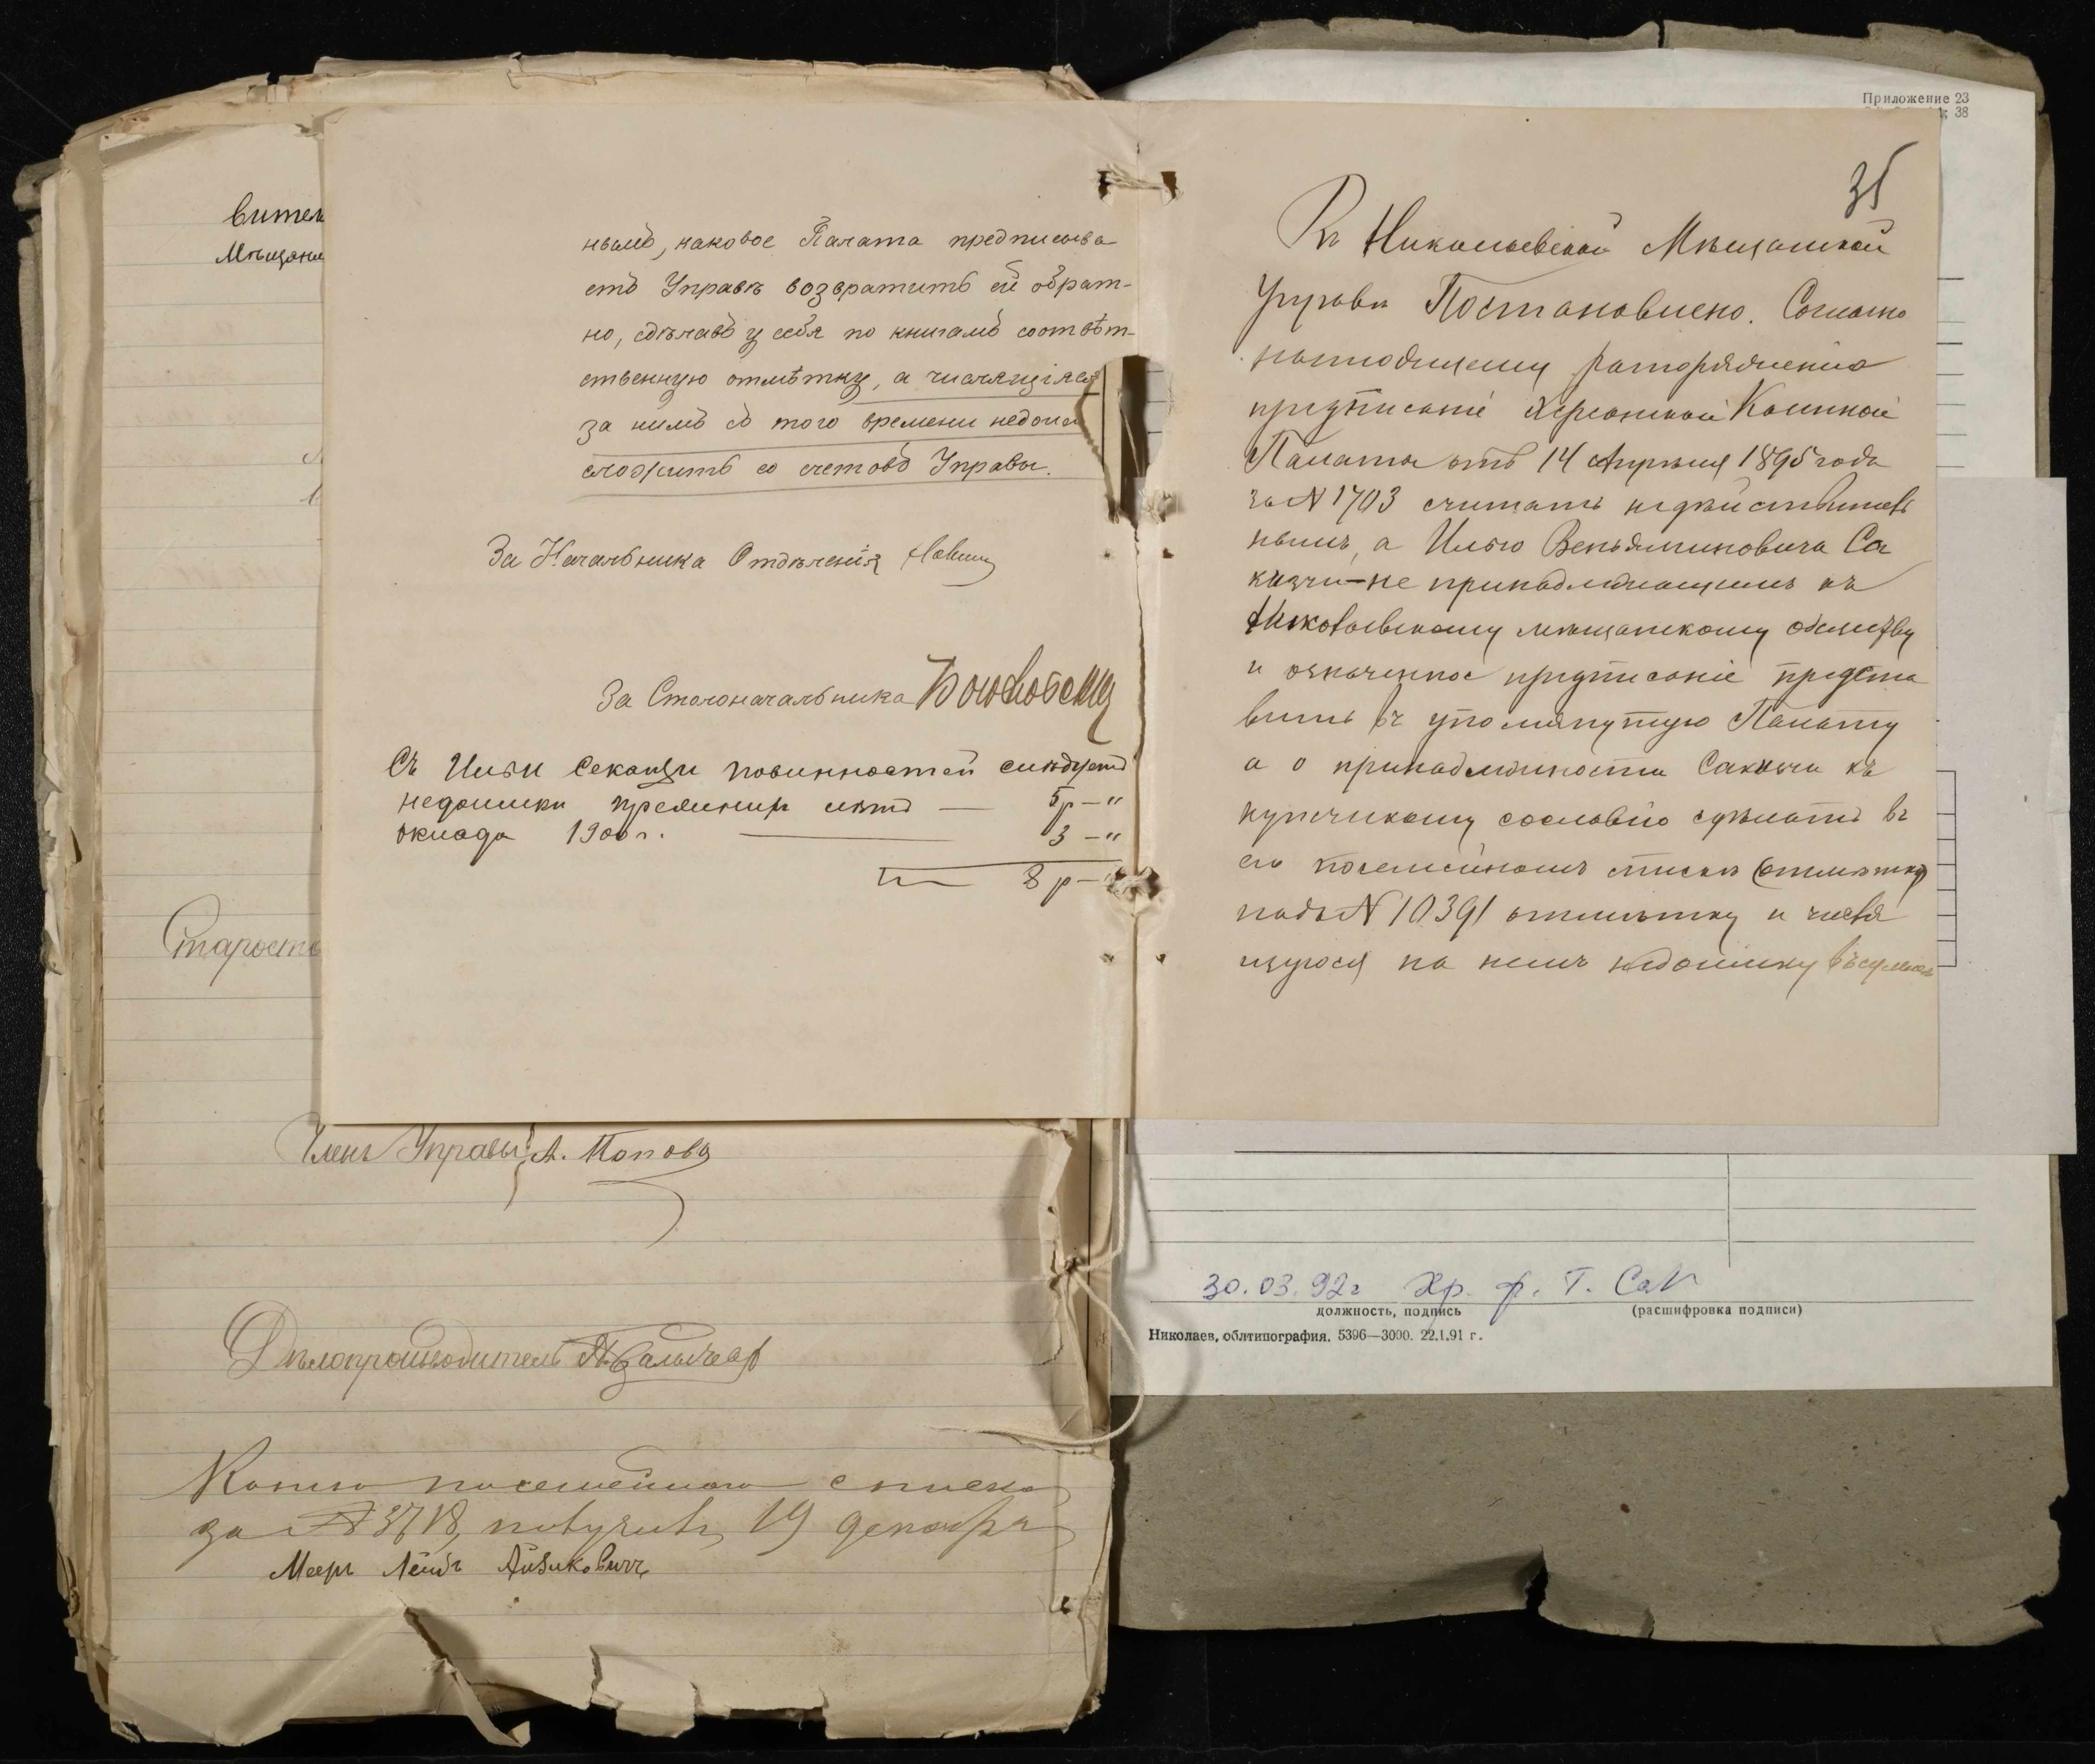 вител
Мѣщани
нымъ, каковое Палата предписыва
етъ Управѣ возвратить ей обрат-
но, сдѣлавъ у себя по книгамъ соотвѣт-
ственную отмѣтку, а числящіяся
за нимъ съ того времени недоим
сложить со счетовъ Управы.
За Начальника Отдѣленія
За Столоначальника
Съ Ильи Секанзи повинностей слѣдуетъ
недоимки прежнихъ лѣтъ — 5 р — "
оклада 1900 г. — 3 — "
8 р — "
Старости
Членъ Управы А. Поповъ
Дѣлопроизводитель
Копію посемейнаго списка
за № 3718, получилъ 19 декабря
Мееръ Лейбъ Айзиковичъ
Приложение 23
38
35
Въ Николаевской Мѣщанской
Управѣ Постановлено. Согласно
настоящему распоряженію
предписаніе Херсонской Казенной
Палаты отъ 14 Апрѣля 1895 года
за № 1703 считать недѣйствитель
нымъ, а Илью Веньяминовича Са
кизчи—не принадлежащимъ къ
Николаевскому мѣщанскому обществу
и означенное предписаніе предста
вить въ упомянутую Палату
а о принадлежности Сакизчи къ
купеческому сословію сдѣлать въ
его посемейномъ спискѣ (отмѣтку)
подъ № 10391 отмѣтку и числя
щуюся на немъ недоимку въ суммѣ
30.03.92г Хр. ф. Т.
должность, подпись (расшифровка подписи)
Николаев, облтипография. 5396—3000. 22.1.91 г.